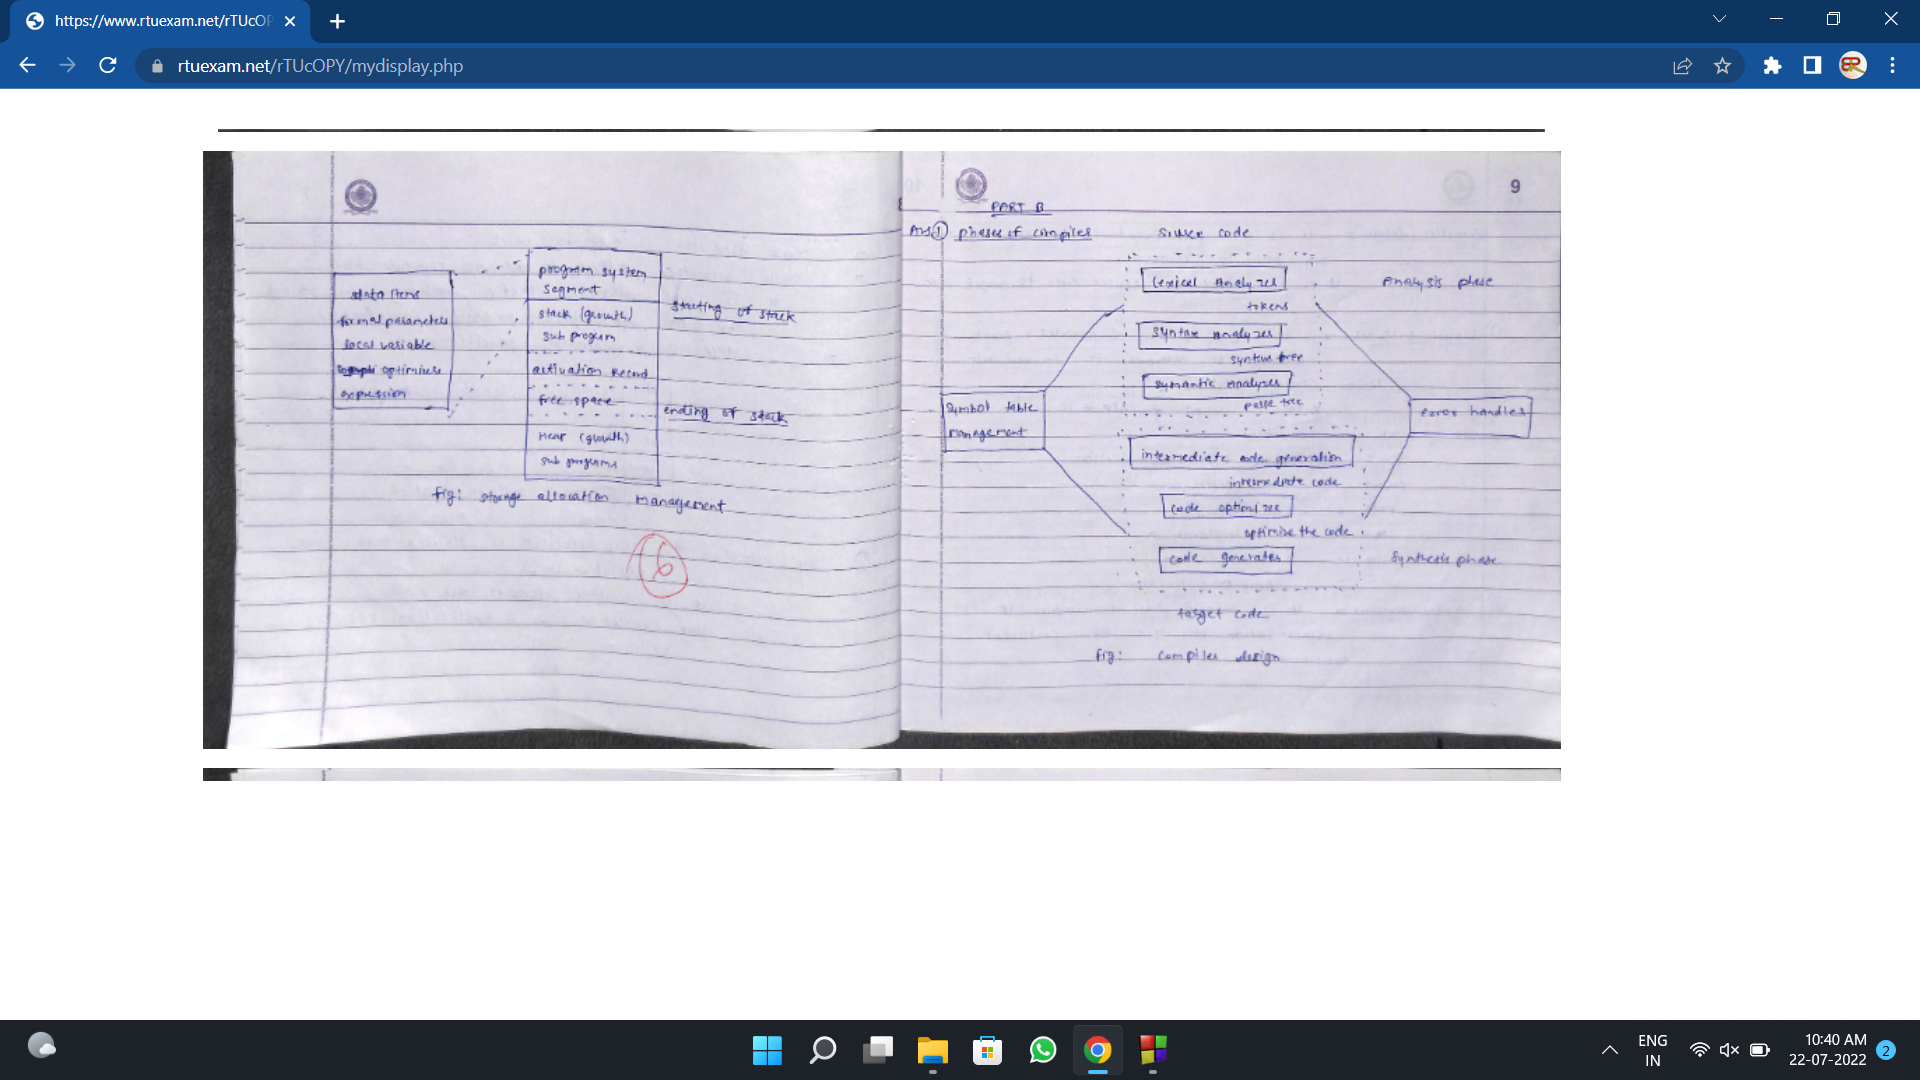 https://www.rtuexam.net/rTUcOP
rtuexam.net/rTUcOPY/mydisplay.php
data items
formal parameters
local variable
optimizers
expression
program system
segment
stack (growth)
sub program
activation record
free space
Heap (growth)
sub programs
starting of stack
ending of stack
fig: storage allocation management
6
9
PART B
Ans 1 phases of compiler
source code
Lexical Analyzer
Analysis phase
tokens
syntax analyzer
syntax tree
symantic analyzer
parse tree
symbol table
management
error handler
intermediate code generation
intermediate code
code optimizer
optimize the code
code generater
synthesis phase
target code
fig: compiler design
ENG
IN
10:40 AM
22-07-2022
2